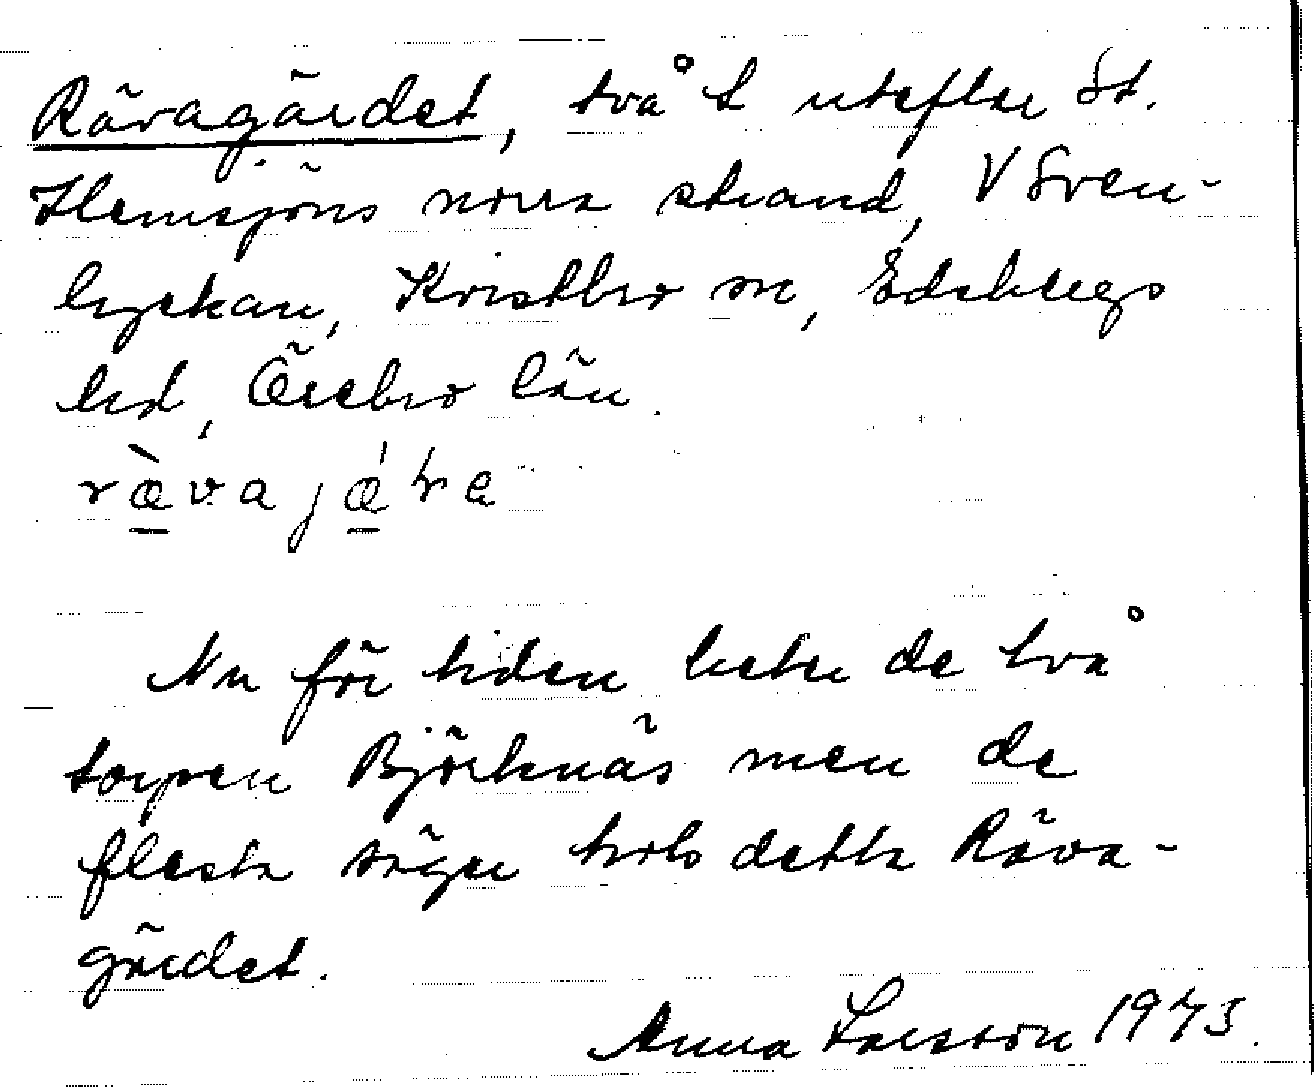 Rävagärdet, två t utefter St.
Hemsjöns norra strand, V Sven-
lyckan, Kvistbro sn, Edsbergs
hrd, Örebro län.
Nu för tiden heter de två
torpen Björknäs men de
flesta säger trots detta Räva-
gärdet.
Anna Larsson 1973.